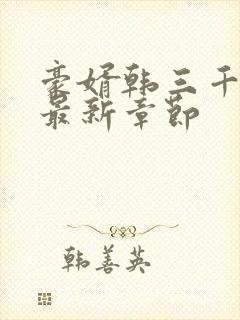 豪婿韩三千
最新章节
韩善英